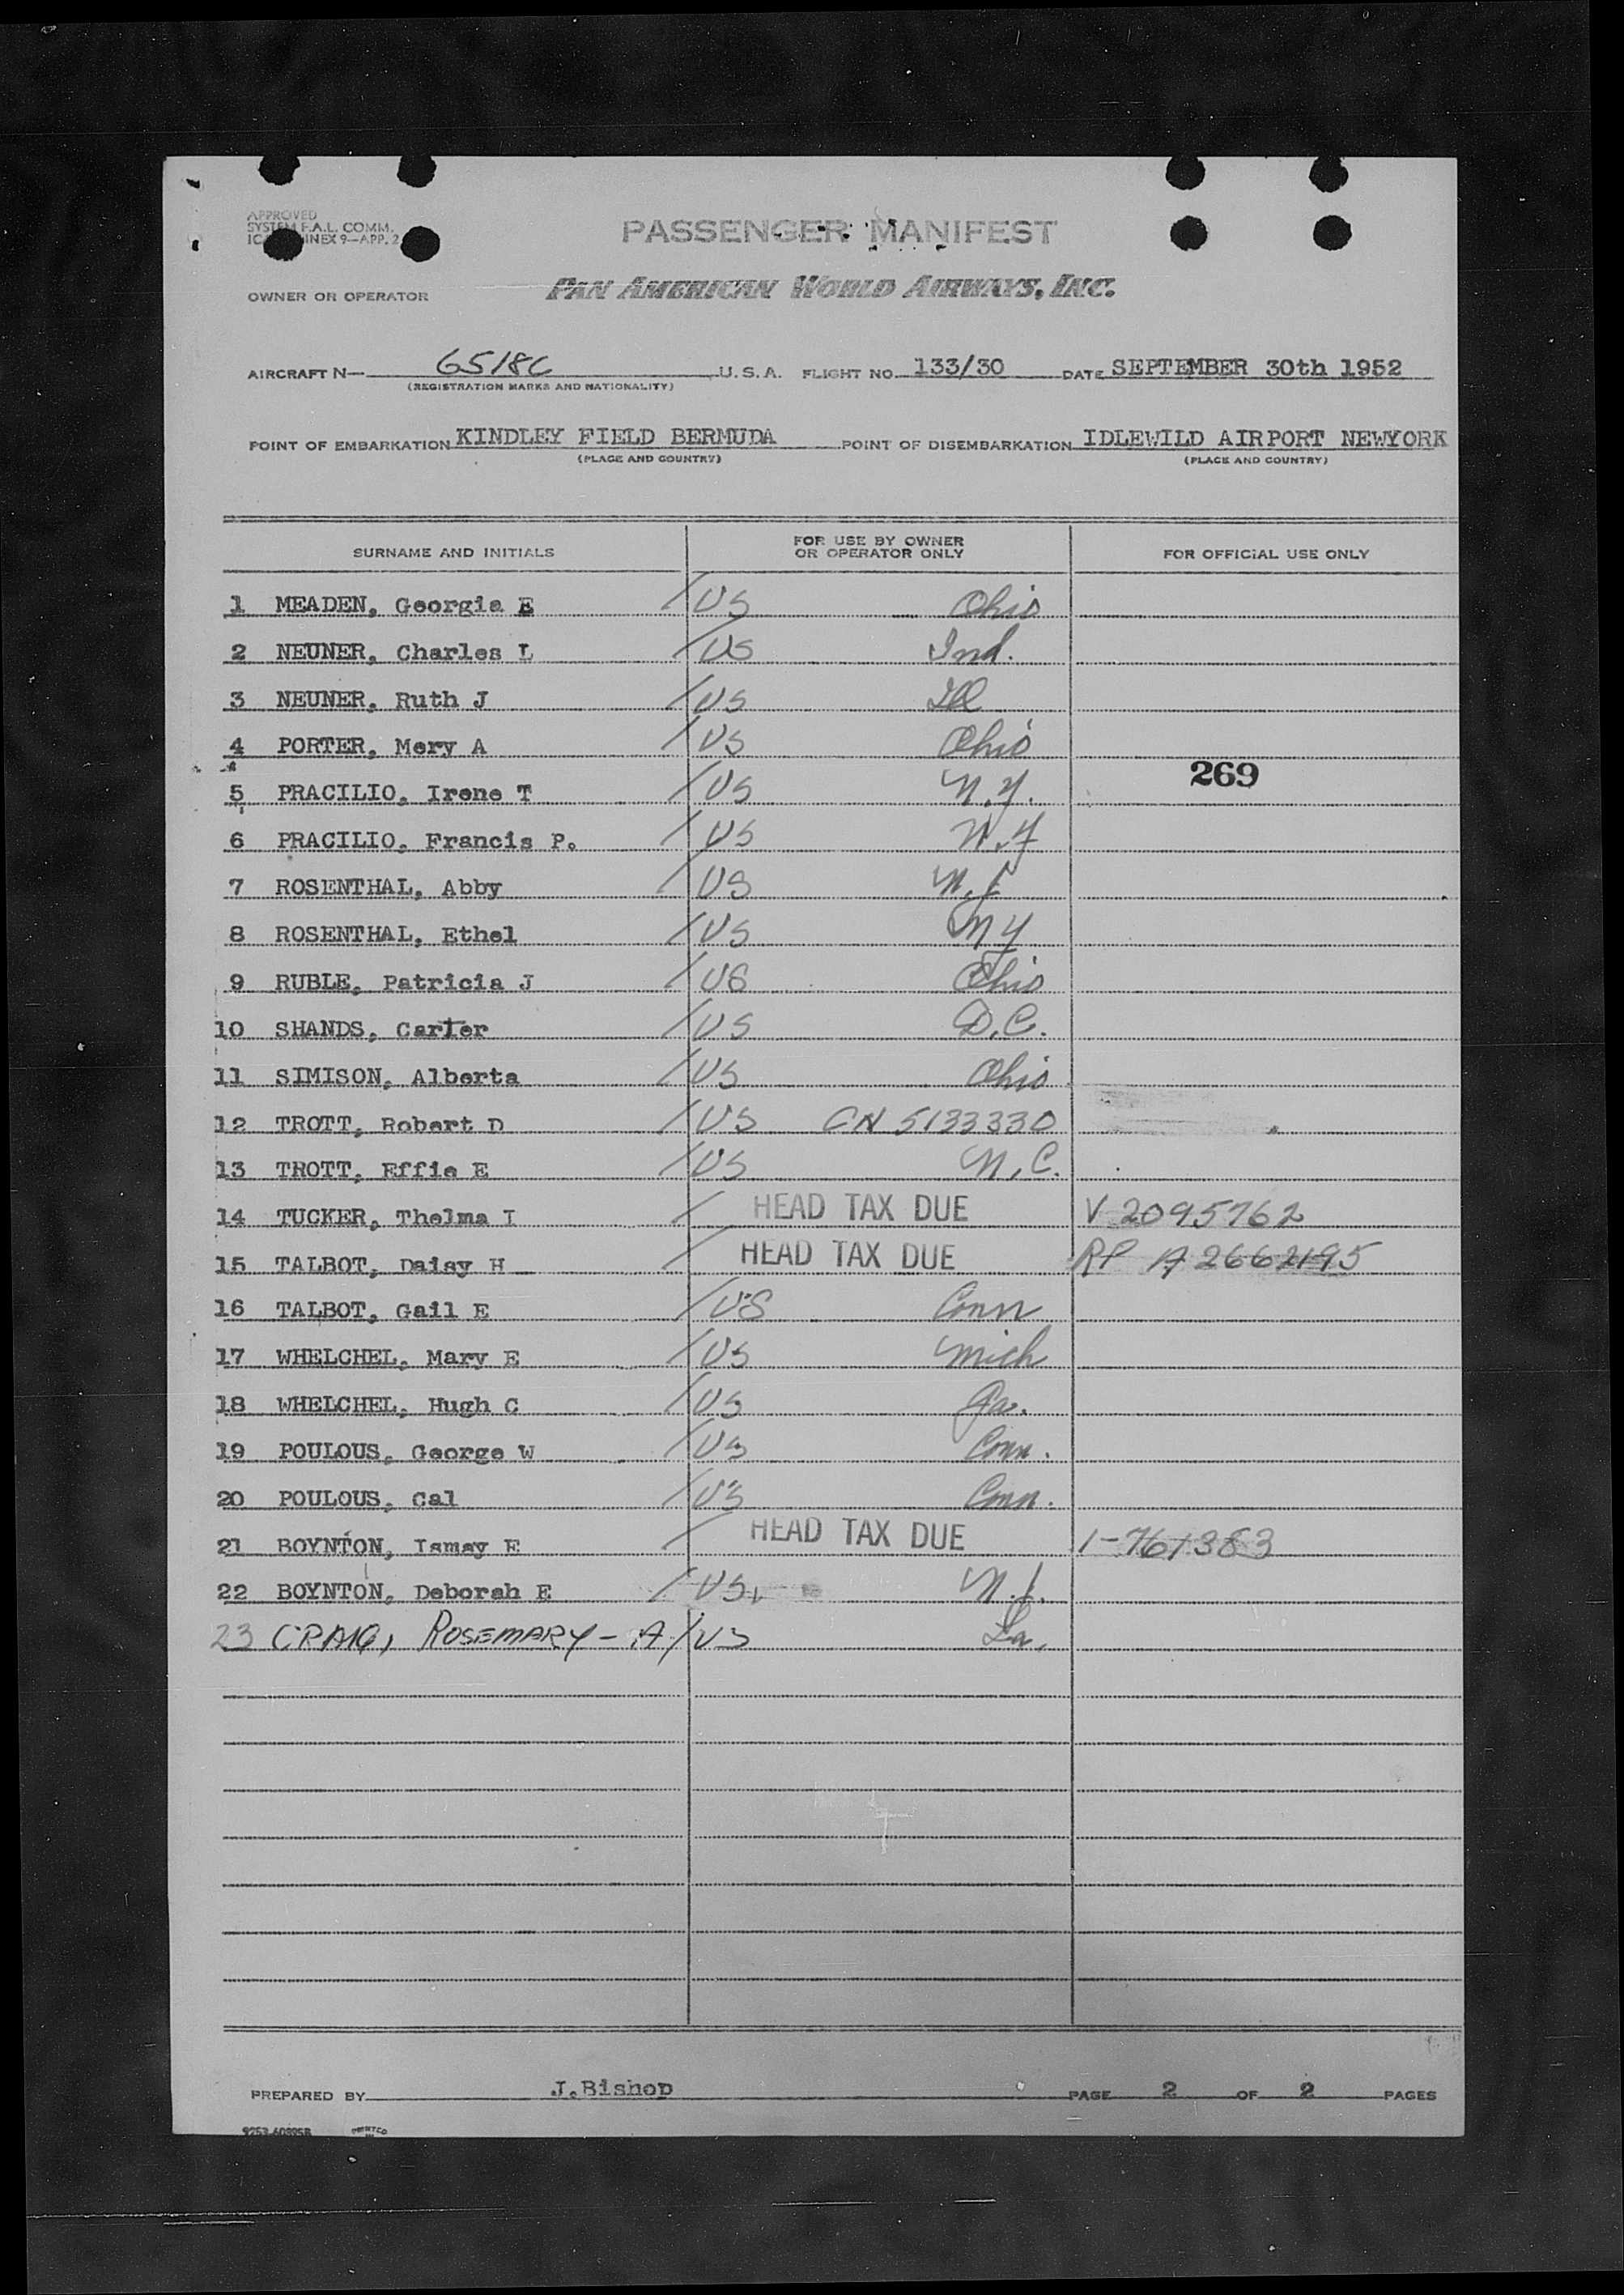 APPROVED
SYSTEM F.A.L. COMM.
ANNEX 9—APP. 2
PASSENGER MANIFEST
OWNER OR OPERATOR PAN AMERICAN WORLD AIRWAYS, INC.
AIRCRAFT N— 6518C U.S.A. FLIGHT NO. 133/30 DATE SEPTEMBER 30th 1952
(REGISTRATION MARKS AND NATIONALITY)
POINT OF EMBARKATION KINDLEY FIELD BERMUDA POINT OF DISEMBARKATION IDLEWILD AIRPORT NEWYORK
(PLACE AND COUNTRY) (PLACE AND COUNTRY)
SURNAME AND INITIALS FOR USE BY OWNER OR OPERATOR ONLY FOR OFFICIAL USE ONLY
1 MEADEN, Georgia E / US Ohio
2 NEUNER, Charles L / US Ind.
3 NEUNER, Ruth J / US Ill
4 PORTER, Mary A / US Ohio
269
5 PRACILIO, Irene T / US N.Y.
6 PRACILIO, Francis P. / US N.Y
7 ROSENTHAL, Abby / US N.J
8 ROSENTHAL, Ethel / US NY
9 RUBLE, Patricia J / US Ohio
10 SHANDS, Carter / US D.C.
11 SIMISON, Alberta / US Ohio
12 TROTT, Robert D / US CN 5133330
13 TROTT, Effie E / US N.C.
14 TUCKER, Thelma I / HEAD TAX DUE V 2095762
15 TALBOT, Daisy H / HEAD TAX DUE RP A 2662195
16 TALBOT, Gail E / US Conn
17 WHELCHEL, Mary E / US Mich
18 WHELCHEL, Hugh C / US Ga.
19 POULOUS, George W / US Conn.
20 POULOUS, Cal / US Conn.
21 BOYNTON, Ismay E / HEAD TAX DUE 1-761383
22 BOYNTON, Deborah E / US N.J.
23 CRAIG, ROSEMARY - A / US La.
PREPARED BY J.Bishop PAGE 2 OF 2 PAGES